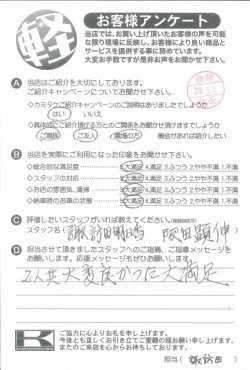 軽
お客様アンケート
当店では、お買い上げ頂いたお客様の声を可能
な限り現場に反映し、お客様により良い商品と
サービスを提供する事に努めています。
大変お手数ですが是非お声をお聞かせ下さい。
A 当店はご紹介を大切にしております。
ご紹介キャンペーンについてお聞かせ下さい
◇カミタケご紹介キャンペーンのご説明はありましたでしょうか
はい いいえ
◇具体的にご紹介頂ける方とのご関係をお聞かせ頂けますでしょうか
ご親戚 ご友人 職場の方 機会があれば紹介したい
B 当店を実際にご利用になった印象をお聞かせ下さい。
◇総合的な満足度 5.大満足 4.満足 3.ふつう 2.やや不満 1.不満
◇スタッフの対応 5.大満足 4.満足 3.ふつう 2.やや不満 1.不満
◇お店の雰囲気、清掃 5.大満足 4.満足 3.ふつう 2.やや不満 1.不満
◇納車時のお車の状態 5.大満足 4.満足 3.ふつう 2.やや不満 1.不満
C 評価したいスタッフがいれば教えてください。
スタッフ名( 諏訪田明日香 阪田顕伸 )
D 担当させて頂きましたスタッフへのご指摘、ご指導メッセージを
お願いします。応援メッセージもぜひお願いします。
2人共大変良かった大満足
K
ご協力に心よりお礼を申し上げます。
今後とも宜しくお引き立てご愛顧の程お願い申し上げます。
またのご来店を心からお待ちしております。
担当( 諏訪田 )